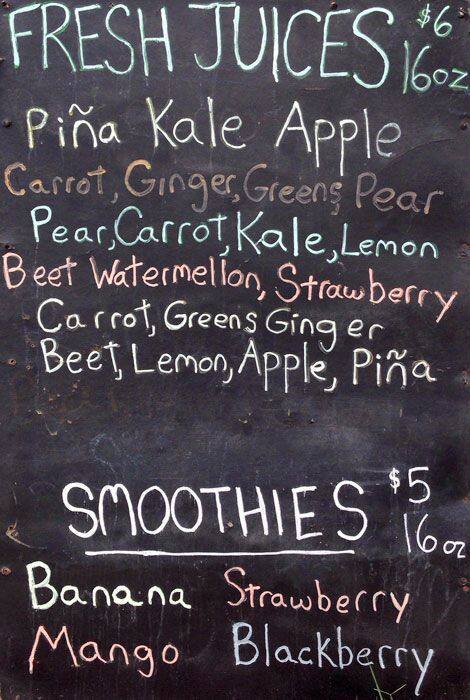 FRESH JUICES $6 16oz
Piña Kale Apple
Carrot, Ginger, Greens, Pear
Pear, Carrot, Kale, Lemon
Beet Watermellon, Strawberry
Carrot, Greens Ginger
Beet, Lemon, Apple, Piña
SMOOTHIES $5 16oz
Banana Strawberry
Mango Blackberry